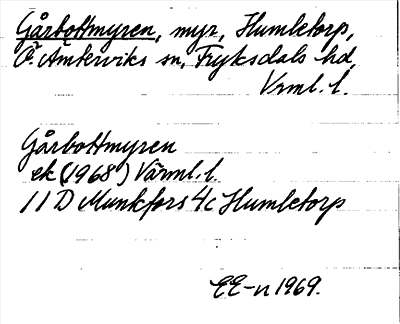 Gårbottmyren, myr, Humletorp,
Ö. Ämterviks sn, Fryksdals hd,
Vrml. l.
Gårbottmyren
ek (1968) Värml. l.
11 D Munkfors 4c Humletorp
EE-n 1969.